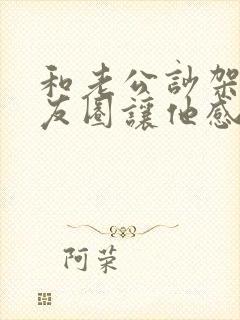 和老公訃架
友圈讓他感
阿荣